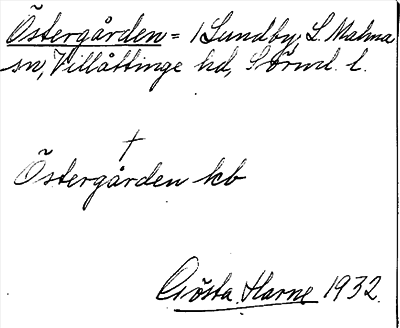 Östergården = 1 Lundby, L. Malma
sn, Villåttinge hd, Sörml. l.
†
Östergården kb
Gösta Harne 1932.